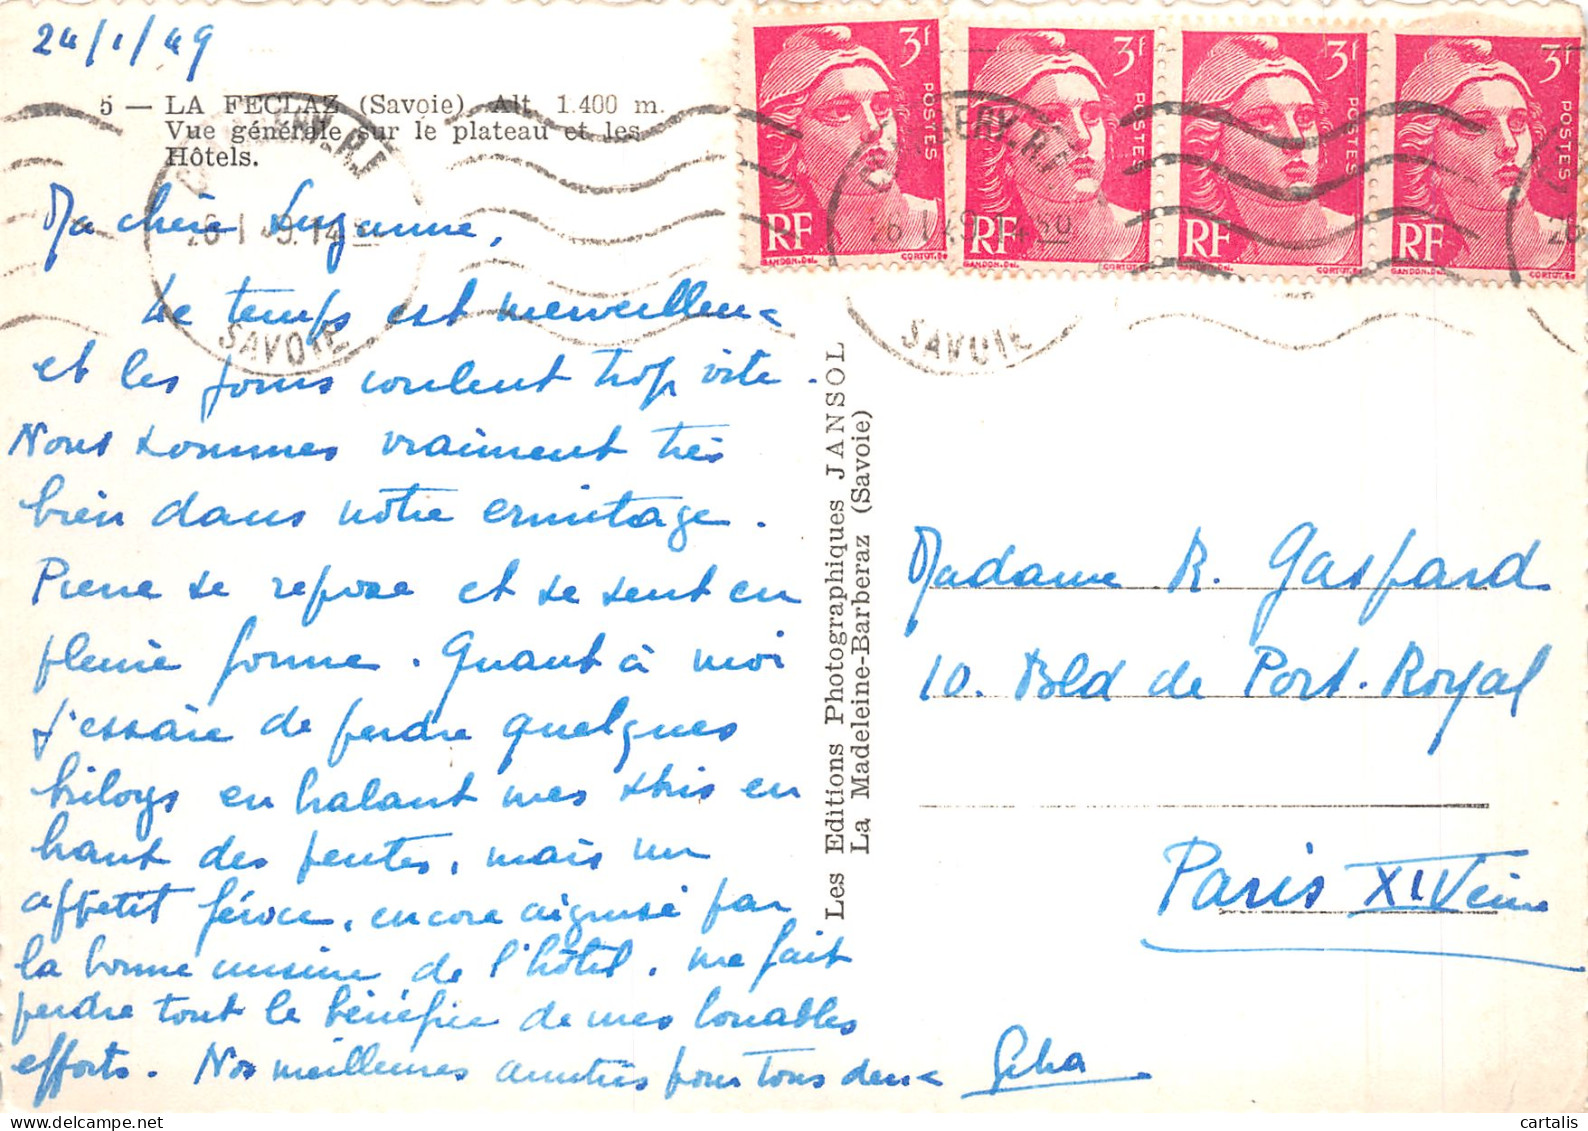 24/1/49
5 — LA FECLAZ (Savoie) Alt. 1.400 m.
Vue générale sur le plateau et les
Hôtels.
Ma chère Suzanne,
Le temps est merveilleux
et les jours coulent trop vite.
Nous sommes vraiment très
bien dans notre ermitage.
Pierre se repose et se sent en
pleine forme. Quant à moi
j'essaie de perdre quelques
kilogs en halant mes skis en
haut des pentes, mais un
appétit féroce, encore aiguisé par
la bonne cuisine de l'hôtel, me fait
perdre tout le bénéfice de mes louables
efforts. Nos meilleures amitiés pour tous deux
Les Editions Photographiques JANSOL
La Madeleine-Barberaz (Savoie)
3f POSTES RF GANDON.Del. CORTOT.Sc
3f POSTES RF GANDON.Del. CORTOT.Sc
3f POSTES RF GANDON.Del. CORTOT.Sc
3f POSTES RF GANDON.Del. CORTOT.Sc
CHAMBERY.R.P.
26-1 49.14 30
SAVOIE
CHAMBERY.R.P.
26-1 49.14 30
SAVOIE
26
Madame R. Gaspard
10. Bld de Port-Royal
Paris XIVème
cartalis